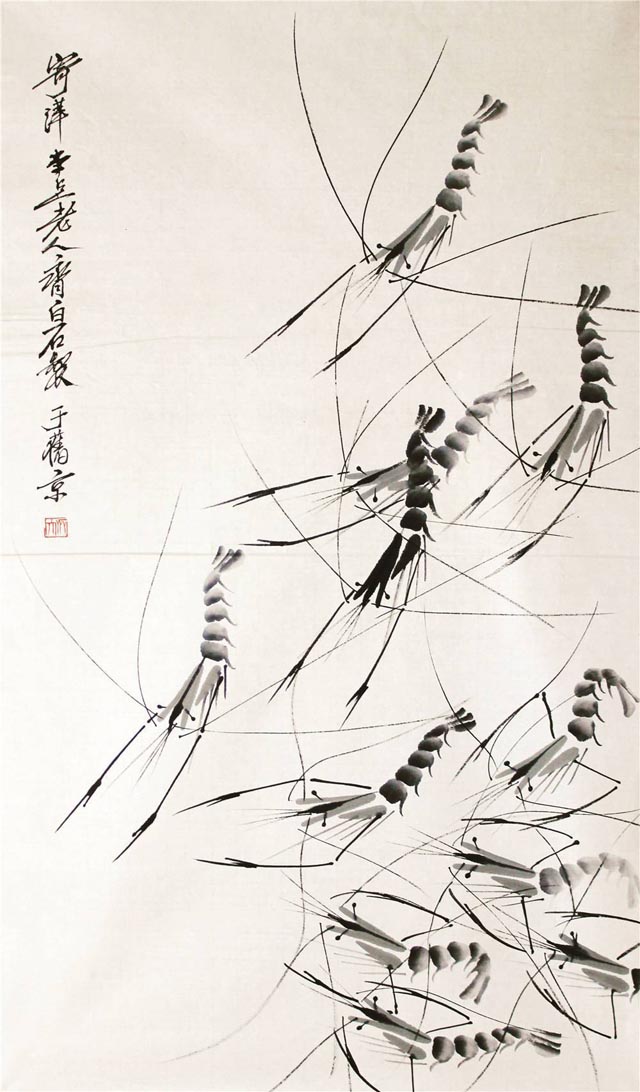 寄萍李立老人齊白石製于舊京